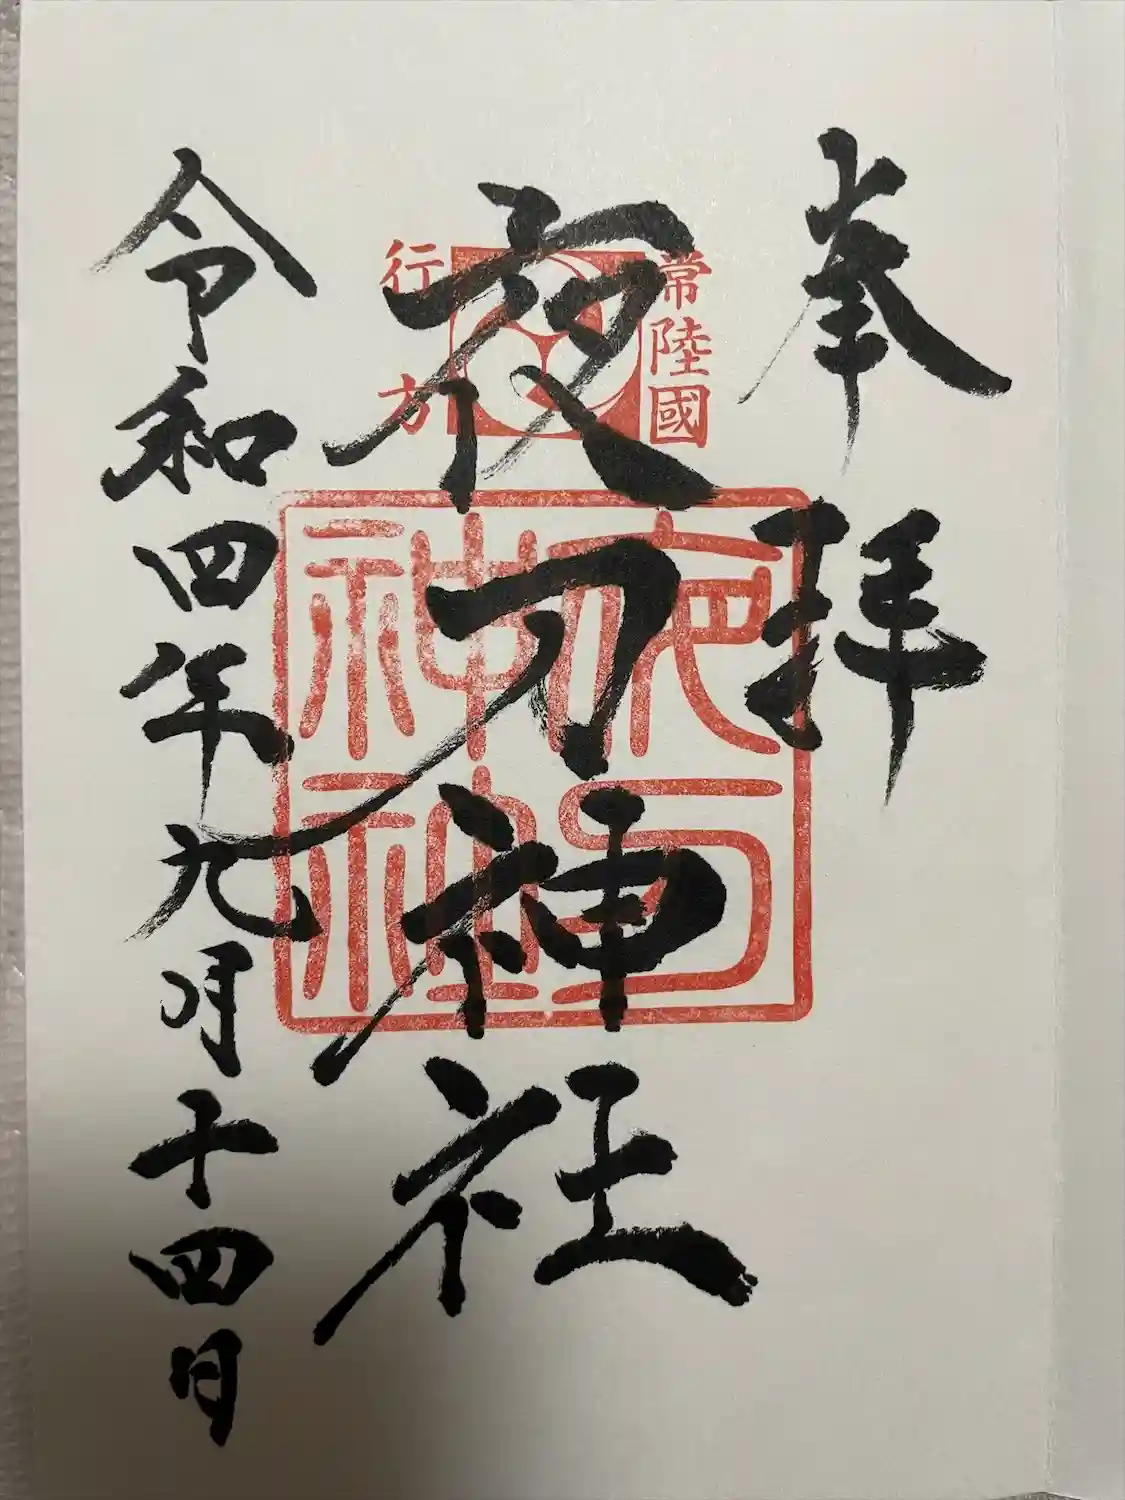 奉拝
常陸國
行方
夜刀神社
夜刀
神社
令和四年九月十四日